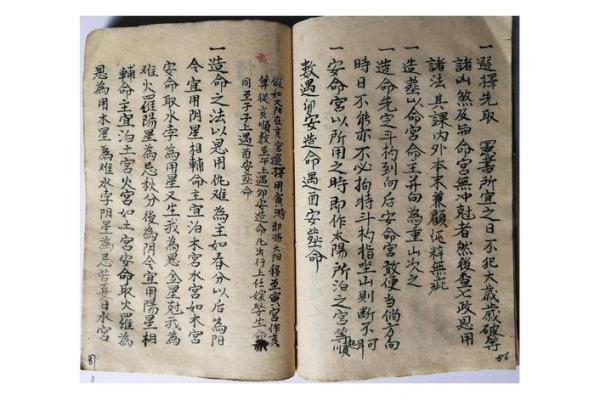 一選擇先取憲書所宜之日不犯大歲歲破等
諸山煞及品命宮無冲尅者然後查七政恩用
諸法其課内外本末兼顧泛釋無疵
一造葬以命宮命主并向為重山次之
一造命先定斗杓到向后安命宮敢便當倘方向
時日不能亦不必拘特斗杓指坐山則斷不可耳
一安命宮以所用之時即作太陽所泊之宮等順
數遇卯安造命遇酉安葬命
86
假如太陽在亥宮選擇用寅時即将太陽移至寅宮作亥
算從亥順数至午上遇卯安造命凡出行上任嫁娶生命
同至子上遇酉安葬命
一造命之法以恩用仇难為主如春分以后為陽
令宜用阴星相輔命主宜泊木宮水宮如木宮
安命取水孛為用星又生我為恩金星尅我為
难火羅陽星為忌秋分後為阴令宜用陽星相
輔命主宜泊土宮火宮如土宮安命取火羅為
恩為用木星為难水孛阴星為忌苦夏日水宮